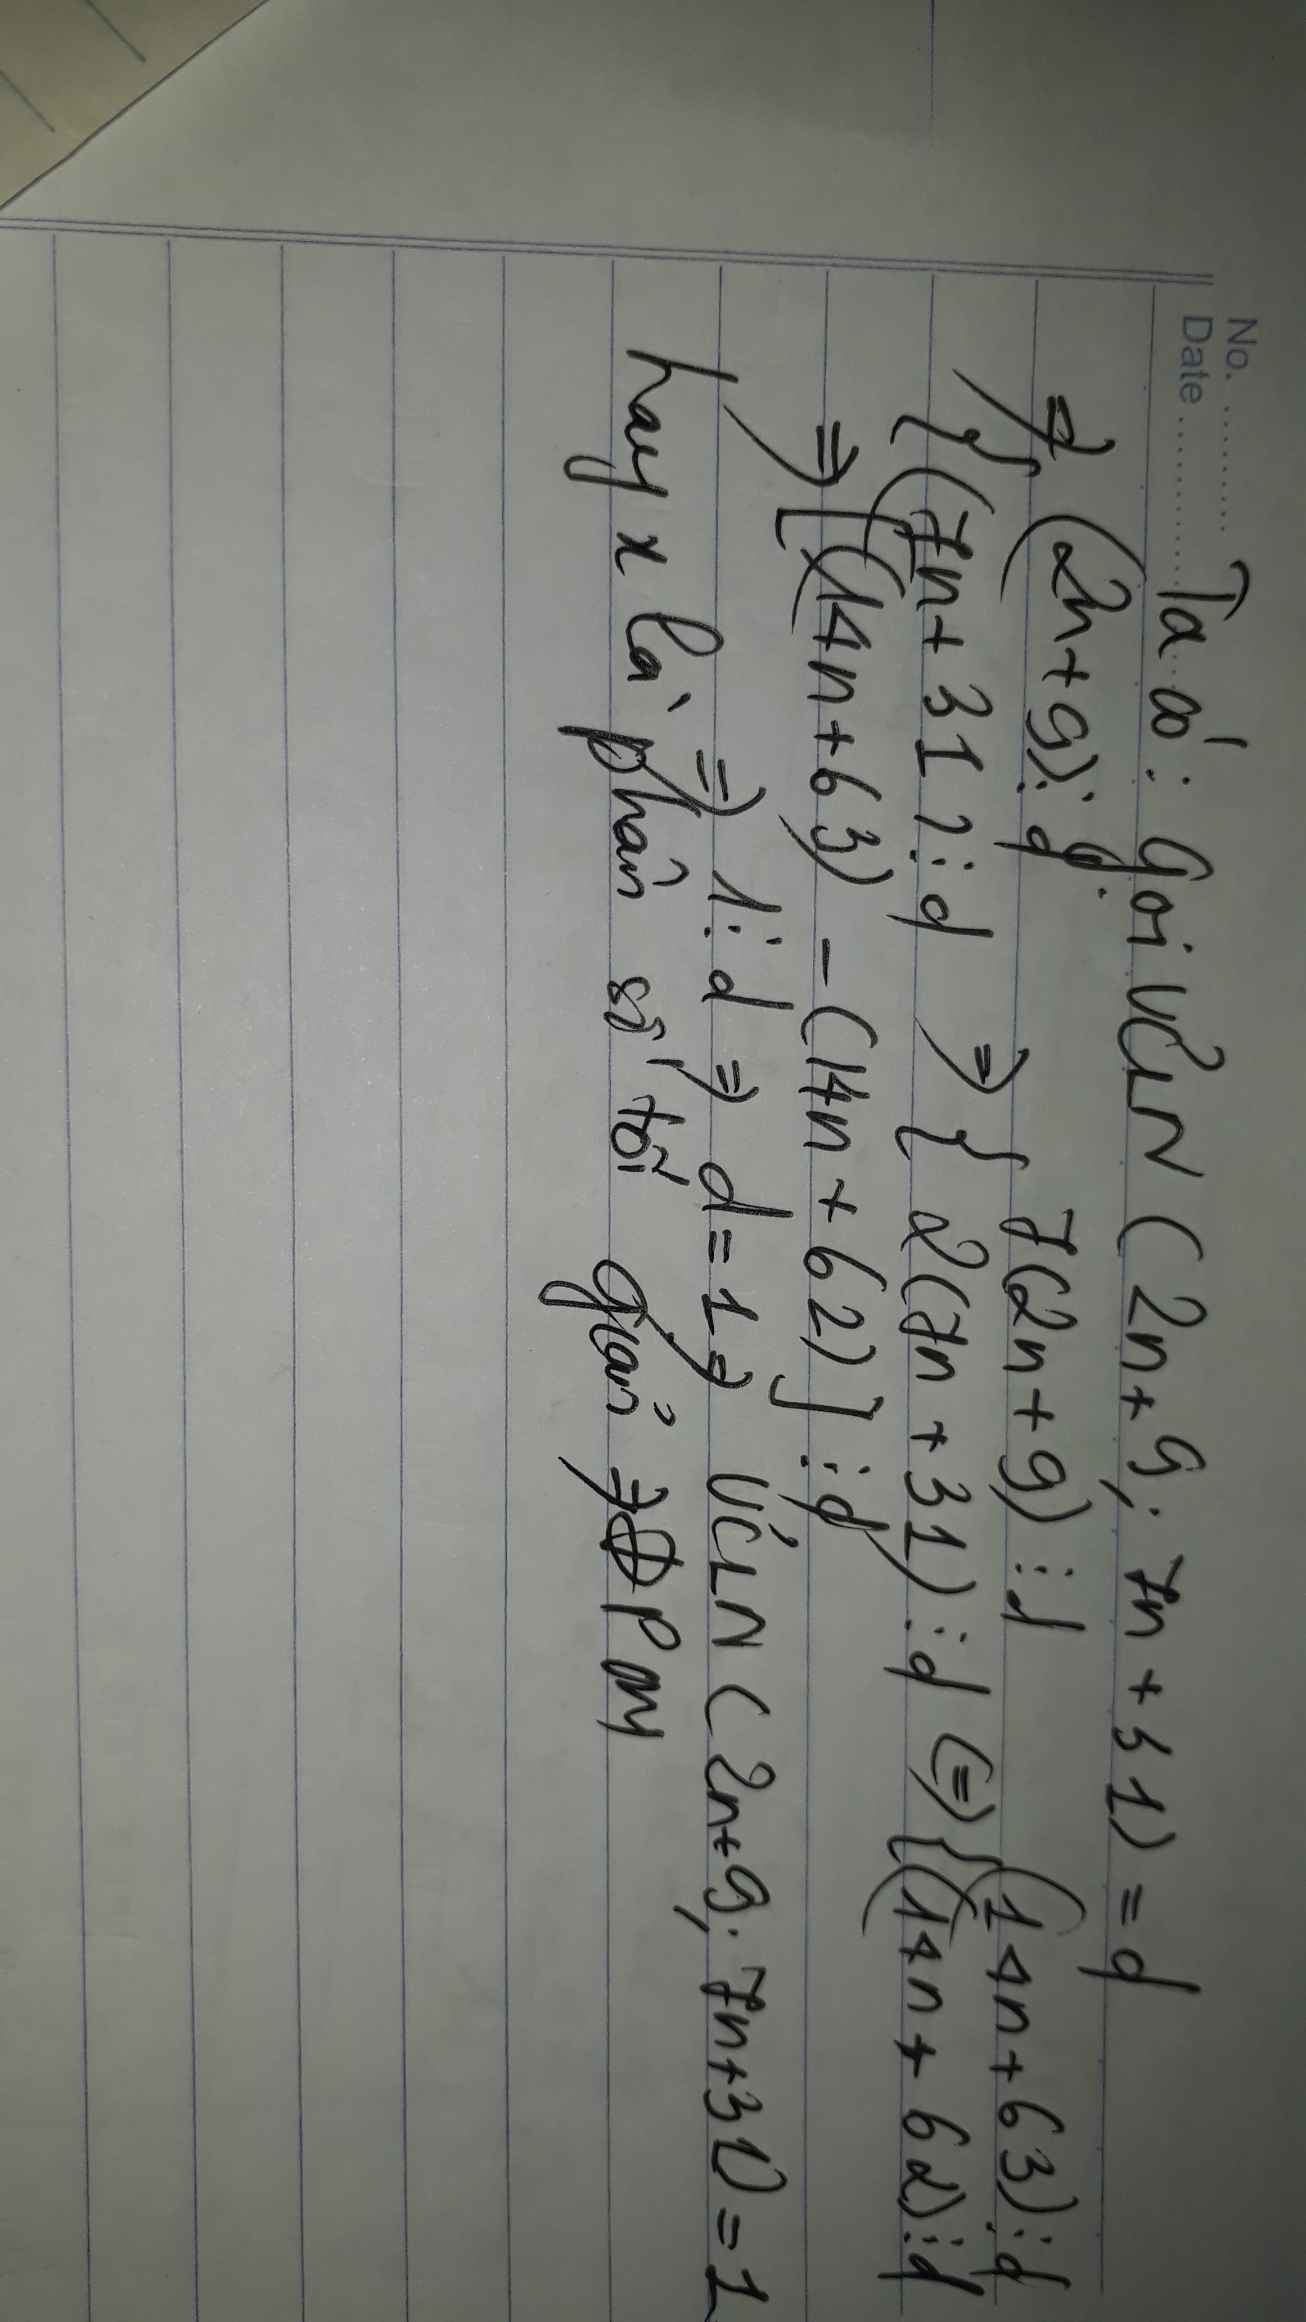 No. ............
Date ...............
Ta có: Gọi ƯCLN (2n+9; 7n+31) = d
=> { (2n+9)⋮d
(7n+31)⋮d => { 7(2n+9)⋮d
2(7n+31)⋮d <=> { (14n+63)⋮d
(14n+62)⋮d
=> [(14n+63) - (14n+62)]⋮d
=> 1⋮d => d=1 => ƯCLN (2n+9; 7n+31) = 1
hay x là phân số tối giản => ĐPCM